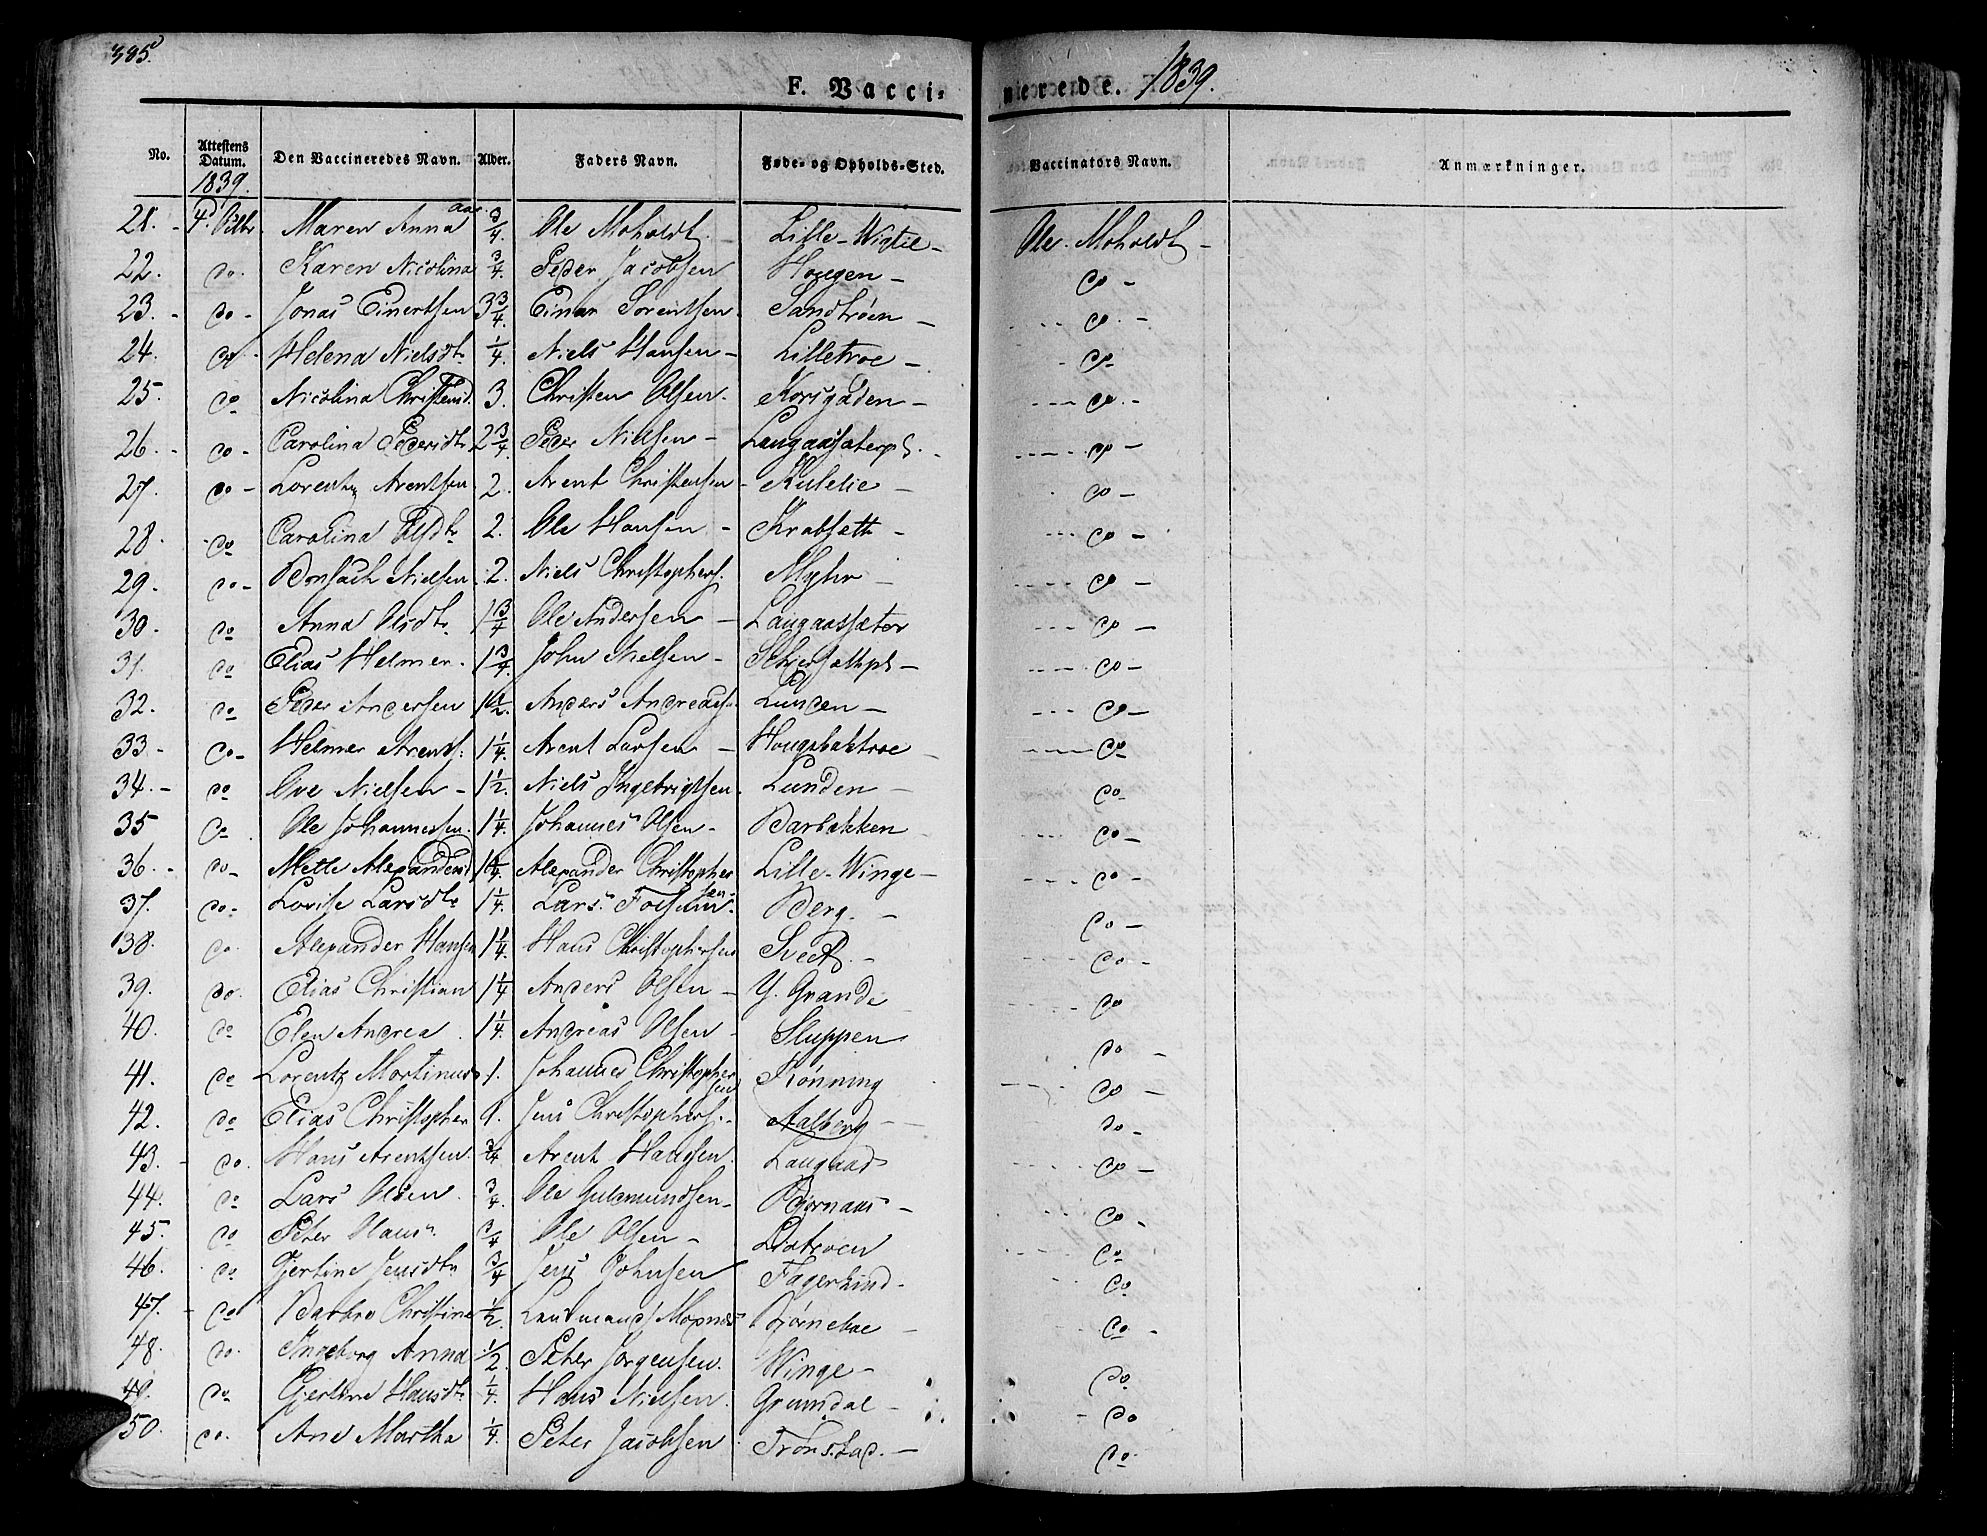 385.
F. Vacci- nerede. 1839.
No. Attestens Datum. Den Vaccineredes Navn. Alder. Faders Navn. Føde- og Opholds-Sted. Vaccinators Navn. Anmærkninger.
1839.
aar
21. 4. Maren Anna 3/4. Ole Moholdt Lille- Ole Moholdt
22. do. Karen Nicolina 3/4. Peder Jacobsen Hougen do
23. do Jonas Einertsen 3 3/4. Einar Sorentsen Sandtrøen do
24. do Helena Nielsdtr 1/4. Niels Hansen Lilletroe do
25. do Nicolina Christensd. 3. Christen Olsen. Korsgaden do
26. do Carolina Pedersdtr 2 3/4 Peder Nielsen Langaassæterpl. do
27. do Lorentz Arentsen 2. Arent Christensen Kulelie do
28. do Carolina Olsdtr 2. Ole Hansen Krabsætt do
29. do Nielsen 2. Niels Christophers. Myhr do
30. do Anna Olsdtr 1 3/4 Ole Andersen Langaassæter do
31. do Elias Helmer. 1 3/4. John Nielsen do
32. do Peder Andersen 1 1/2. Anders Andreass. Lunden do
33 do Helmer Arents: 1 1/4. Arent Larsen Hougsbaktroe do
34. do Ove Nielsen 1 1/2. Niels Ingebrigtsen Lunden do
35 do Ole Johannessen. 1 1/4. Johannes Olsen Barbakken do
36. do Mette Alexandersd 1 1/4. Alexander Christopher Lille-Winge do
sen
37. do Lovise Larsdtr 1 1/4. Lars Berg. do
38. do Alexander Hansen 1 1/4. Hans Christophersen do
39. do. Elias Christian 1 1/4 Anders Olsen Y. Grande do
40. do Elen Andrea 1 1/4. Andreas Olsen Sluppen do
41. do Lorentz Martinus 1. Johannes Christopher Rønning do
sen
42. do Elias Christopher 1. Jens Christophers. Aalberg do
43. do. Hans Arentsen. 3/4 Arent Hansen. Langaas do
44. do Lars Olsen 3/4. Ole Gulmundsen Bjørnaas do
45. do Peter 3/4 Ole Olsen Liatroen do
46. do Gjertine Jensdtr 3/4 Jens Johnsen Fagerlund do
47. do Barbro Christine 1/2. Landmand Moxnes Bjørnebae do
48. do. Ingeborg Anna 1/2 Peter Jørgensen. Winge do
49. do. Gjertine Hansdtr 1/4. Hans Nielsen. Grumdal do
50. do. Ane Martha 1/4. Peter Jacobsen Trønstad. do